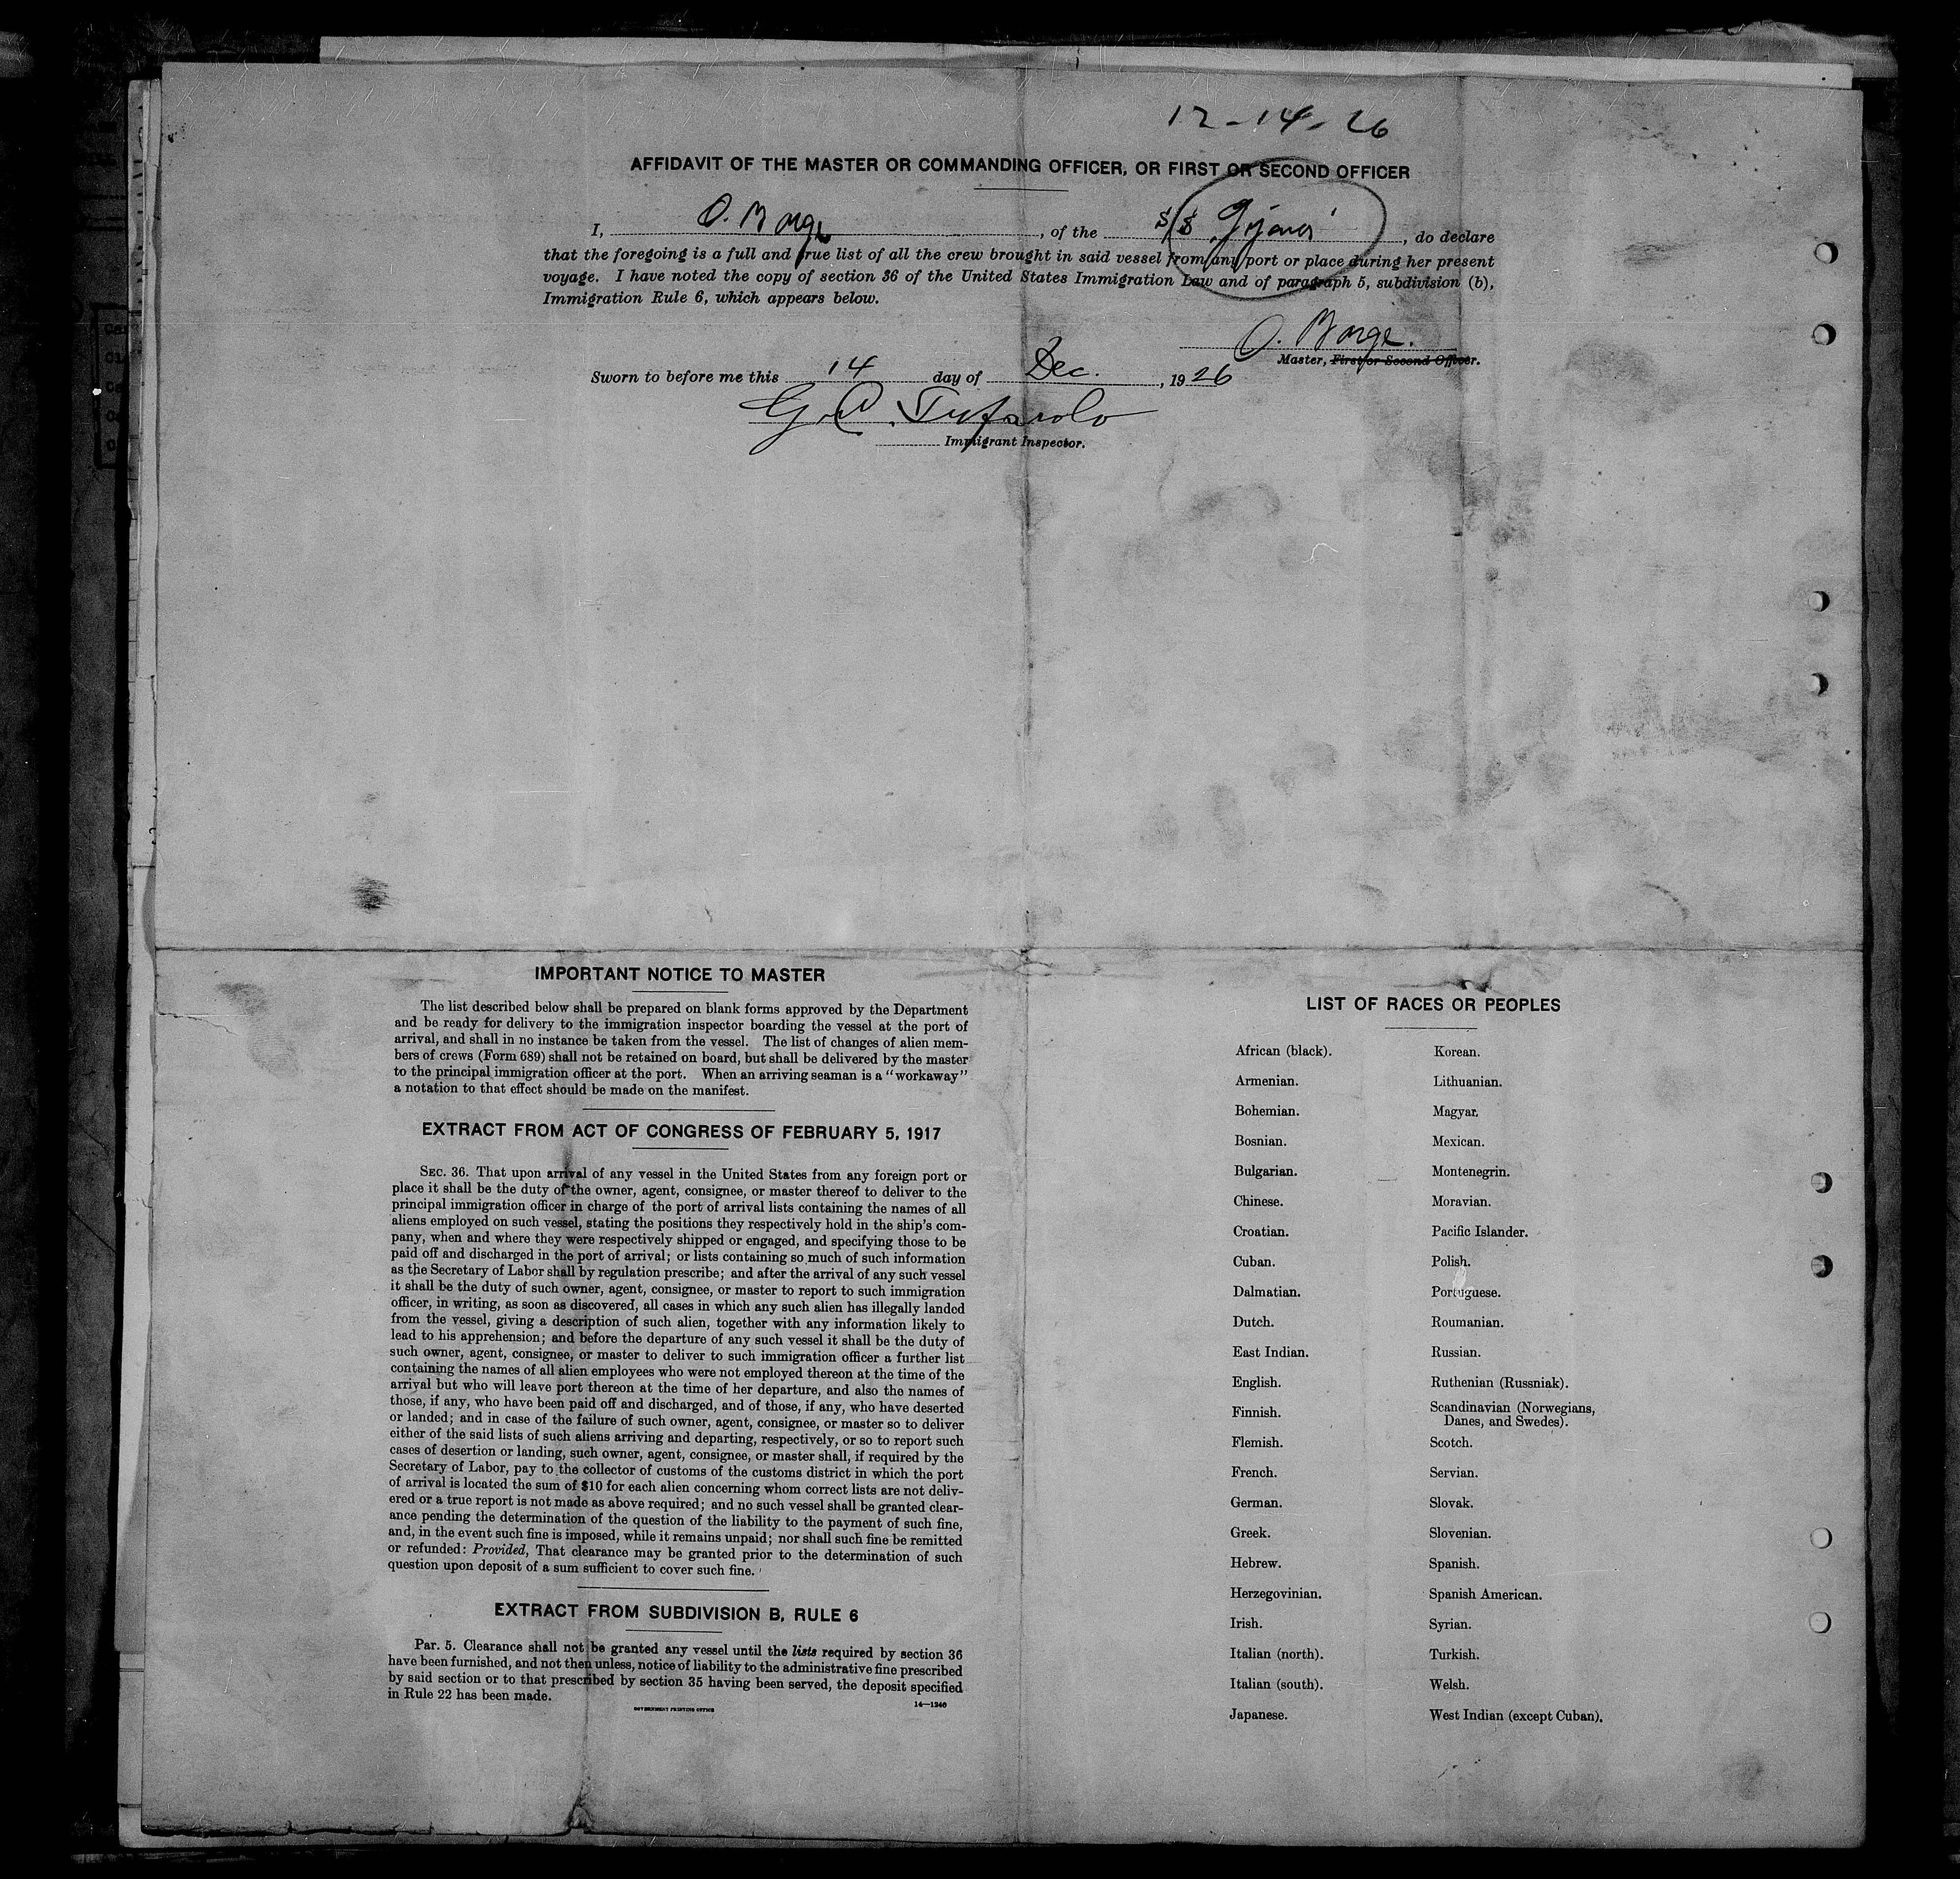 12-14-26
AFFIDAVIT OF THE MASTER OR COMMANDING OFFICER, OR FIRST OR SECOND OFFICER
I, O. Borge, of the S/S, do declare
that the foregoing is a full and true list of all the crew brought in said vessel from any port or place during her present
voyage. I have noted the copy of section 36 of the United States Immigration Law and of paragraph 5, subdivision (b),
Immigration Rule 6, which appears below.
O. Borge.
Master, First or Second Officer.
Sworn to before me this 14 day of Dec., 1926
Immigrant Inspector.
IMPORTANT NOTICE TO MASTER
The list described below shall be prepared on blank forms approved by the Department
and be ready for delivery to the immigration inspector boarding the vessel at the port of
arrival, and shall in no instance be taken from the vessel. The list of changes of alien mem-
bers of crews (Form 689) shall not be retained on board, but shall be delivered by the master
to the principal immigration officer at the port. When an arriving seaman is a "workaway"
a notation to that effect should be made on the manifest.
EXTRACT FROM ACT OF CONGRESS OF FEBRUARY 5, 1917
SEC. 36. That upon arrival of any vessel in the United States from any foreign port or
place it shall be the duty of the owner, agent, consignee, or master thereof to deliver to the
principal immigration officer in charge of the port of arrival lists containing the names of all
aliens employed on such vessel, stating the positions they respectively hold in the ship's com-
pany, when and where they were respectively shipped or engaged, and specifying those to be
paid off and discharged in the port of arrival; or lists containing so much of such information
as the Secretary of Labor shall by regulation prescribe; and after the arrival of any such vessel
it shall be the duty of such owner, agent, consignee, or master to report to such immigration
officer, in writing, as soon as discovered, all cases in which any such alien has illegally landed
from the vessel, giving a description of such alien, together with any information likely to
lead to his apprehension; and before the departure of any such vessel it shall be the duty of
such owner, agent, consignee, or master to deliver to such immigration officer a further list
containing the names of all alien employees who were not employed thereon at the time of the
arrival but who will leave port thereon at the time of her departure, and also the names of
those, if any, who have been paid off and discharged, and of those, if any, who have deserted
or landed; and in case of the failure of such owner, agent, consignee, or master so to deliver
either of the said lists of such aliens arriving and departing, respectively, or so to report such
cases of desertion or landing, such owner, agent, consignee, or master shall, if required by the
Secretary of Labor, pay to the collector of customs of the customs district in which the port
of arrival is located the sum of $10 for each alien concerning whom correct lists are not deliv-
ered or a true report is not made as above required; and no such vessel shall be granted clear-
ance pending the determination of the question of the liability to the payment of such fine,
and, in the event such fine is imposed, while it remains unpaid; nor shall such fine be remitted
or refunded: Provided, That clearance may be granted prior to the determination of such
question upon deposit of a sum sufficient to cover such fine.
EXTRACT FROM SUBDIVISION B, RULE 6
Par. 5. Clearance shall not be granted any vessel until the lists required by section 36
have been furnished, and not then unless, notice of liability to the administrative fine prescribed
by said section or to that prescribed by section 35 having been served, the deposit specified
in Rule 22 has been made.
GOVERNMENT PRINTING OFFICE 14—1240
LIST OF RACES OR PEOPLES
African (black). Korean.
Armenian. Lithuanian.
Bohemian. Magyar.
Bosnian. Mexican.
Bulgarian. Montenegrin.
Chinese. Moravian.
Croatian. Pacific Islander.
Cuban. Polish.
Dalmatian. Portuguese.
Dutch. Roumanian.
East Indian. Russian.
English. Ruthenian (Russniak).
Finnish. Scandinavian (Norwegians,
Danes, and Swedes).
Flemish. Scotch.
French. Servian.
German. Slovak.
Greek. Slovenian.
Hebrew. Spanish.
Herzegovinian. Spanish American.
Irish. Syrian.
Italian (north). Turkish.
Italian (south). Welsh.
Japanese. West Indian (except Cuban).